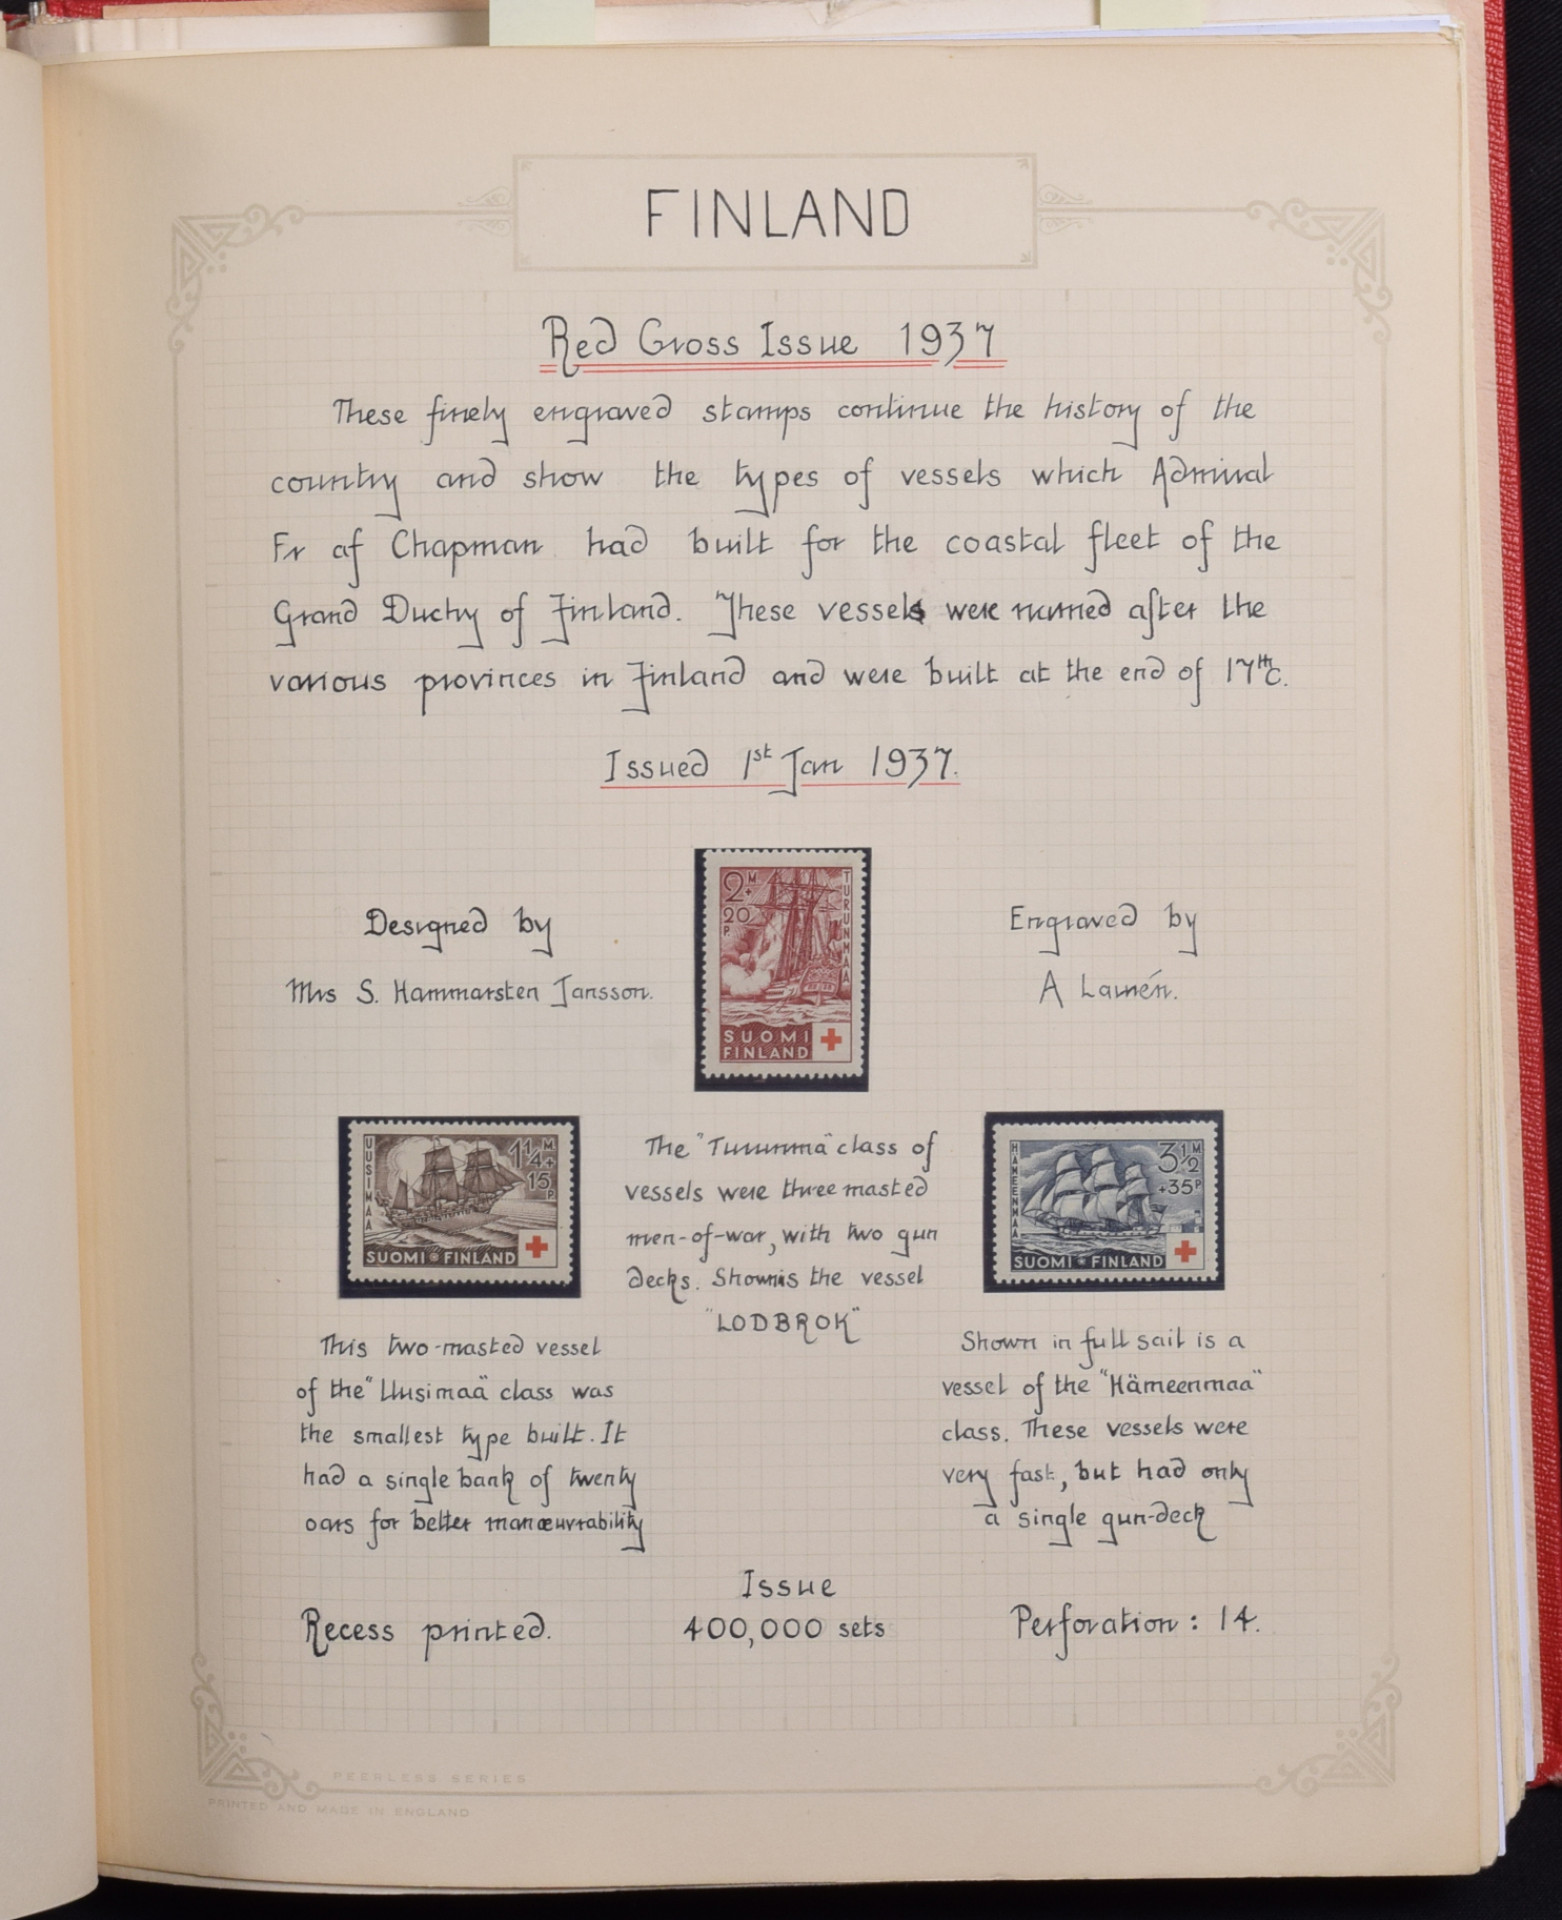 FINLAND
Red Cross Issue 1937
These finely engraved stamps continue the history of the
country and show the types of vessels which Admiral
Fr af Chapman had built for the coastal fleet of the
Grand Duchy of Finland. These vessels were named after the
various provinces in Finland and were built at the end of 17th C.
Issued 1st Jan 1937.
Designed by
Mrs S. Hammarsten Jansson.
2M+
20P.
TURUNMAA
SUOMI
FINLAND
Engraved by
A Lamén.
UUSIMAA
1¼M+
15P
SUOMI FINLAND
The "Turunma" class of
vessels were three masted
men-of-war, with two gun
decks. Shown is the vessel
"LODBROK"
HÄMEENMAA
3½M
+35P
SUOMI FINLAND
This two-masted vessel
of the "Uusimaa" class was
the smallest type built. It
had a single bank of twenty
oars for better manœuvrability
Shown in full sail is a
vessel of the "Hämeenmaa"
class. These vessels were
very fast, but had only
a single gun-deck
Recess printed.
Issue
400,000 sets
Perforation: 14.
PEERLESS SERIES
PRINTED AND MADE IN ENGLAND